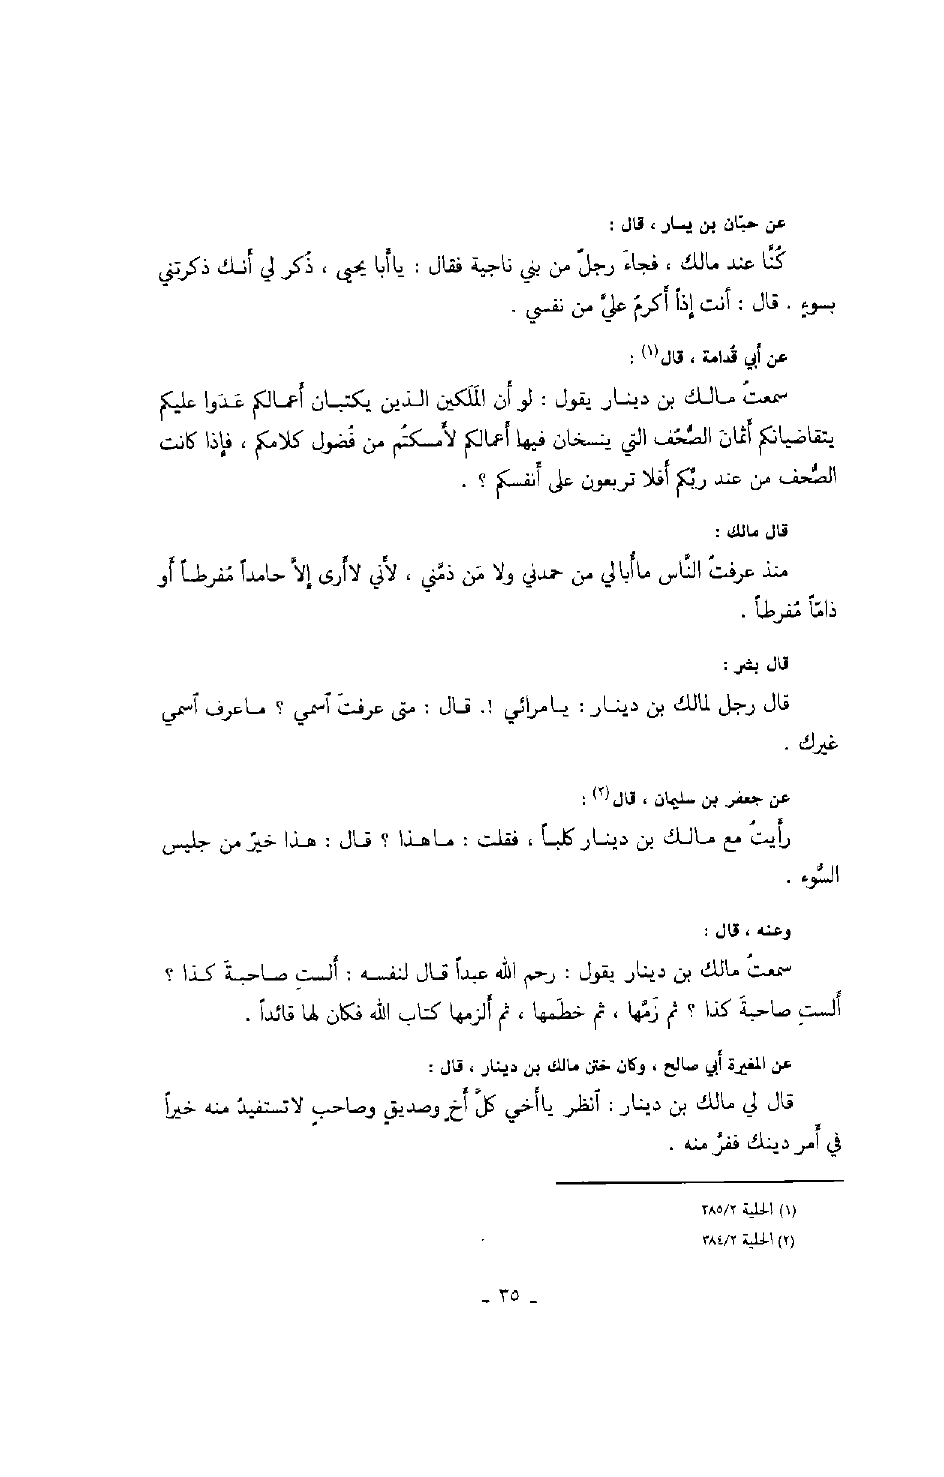 عن حبّان بن يسار ، قال :
كُنَّا عند مالك ، فجاءَ رجلٌ من بني ناجية فقال : ياأبا يحيى ، ذُكر لي أنك ذكرتني
بسوءٍ . قال : أنت إذاً أكرمُ عليَّ من نفسي .
عن أبي قُدامة ، قال(١) :
سمعتُ مالك بن دينار يقول : لو أن المَلَكين الذين يكتبان أعمالكم غَدَوا عليكم
يتقاضيانكم أثمانَ الصُّحُف التي ينسخان فيها أعمالكم لأمسكتُم من فُضول كلامكم ، فإذا كانت
الصُّحف من عند ربّكم أفلا تربعون على أنفسكم ؟ .
قال مالك :
منذ عرفتُ النَّاس ماأُبالي من حمدني ولا مَن ذمَّني ، لأني لاأرى إلاَّ حامداً مُفرطاً أو
ذامّاً مُفرطاً .
قال بشر :
قال رجل لمالك بن دينار : يامرائي !. قال : متى عرفتَ آسمي ؟ ماعرف آسمي
غيرك .
عن جعفر بن سليمان ، قال(٢) :
رأيتُ مع مالك بن دينار كلباً ، فقلت : ماهذا ؟ قال : هذا خيرٌ من جليس
السُّوء .
وعنه ، قال :
سمعتُ مالك بن دينار يقول : رحم الله عبداً قال لنفسه : ألستِ صاحبةَ كذا ؟
ألستِ صاحبةَ كذا ؟ ثم زَمَّها ، ثم خطَمها ، ثم ألزمها كتاب الله فكان لها قائداً .
عن المغيرة أبي صالح ، وكان ختن مالك بن دينار ، قال :
قال لي مالك بن دينار : آنظر ياأخي كلَّ أخٍ وصديقٍ وصاحبٍ لاتستفيدُ منه خيراً
في أمر دينك ففرَّ منه .
(١) الحلية ٣٨٥/٢
(٢) الحلية ٣٨٤/٢
- ٣٥ -